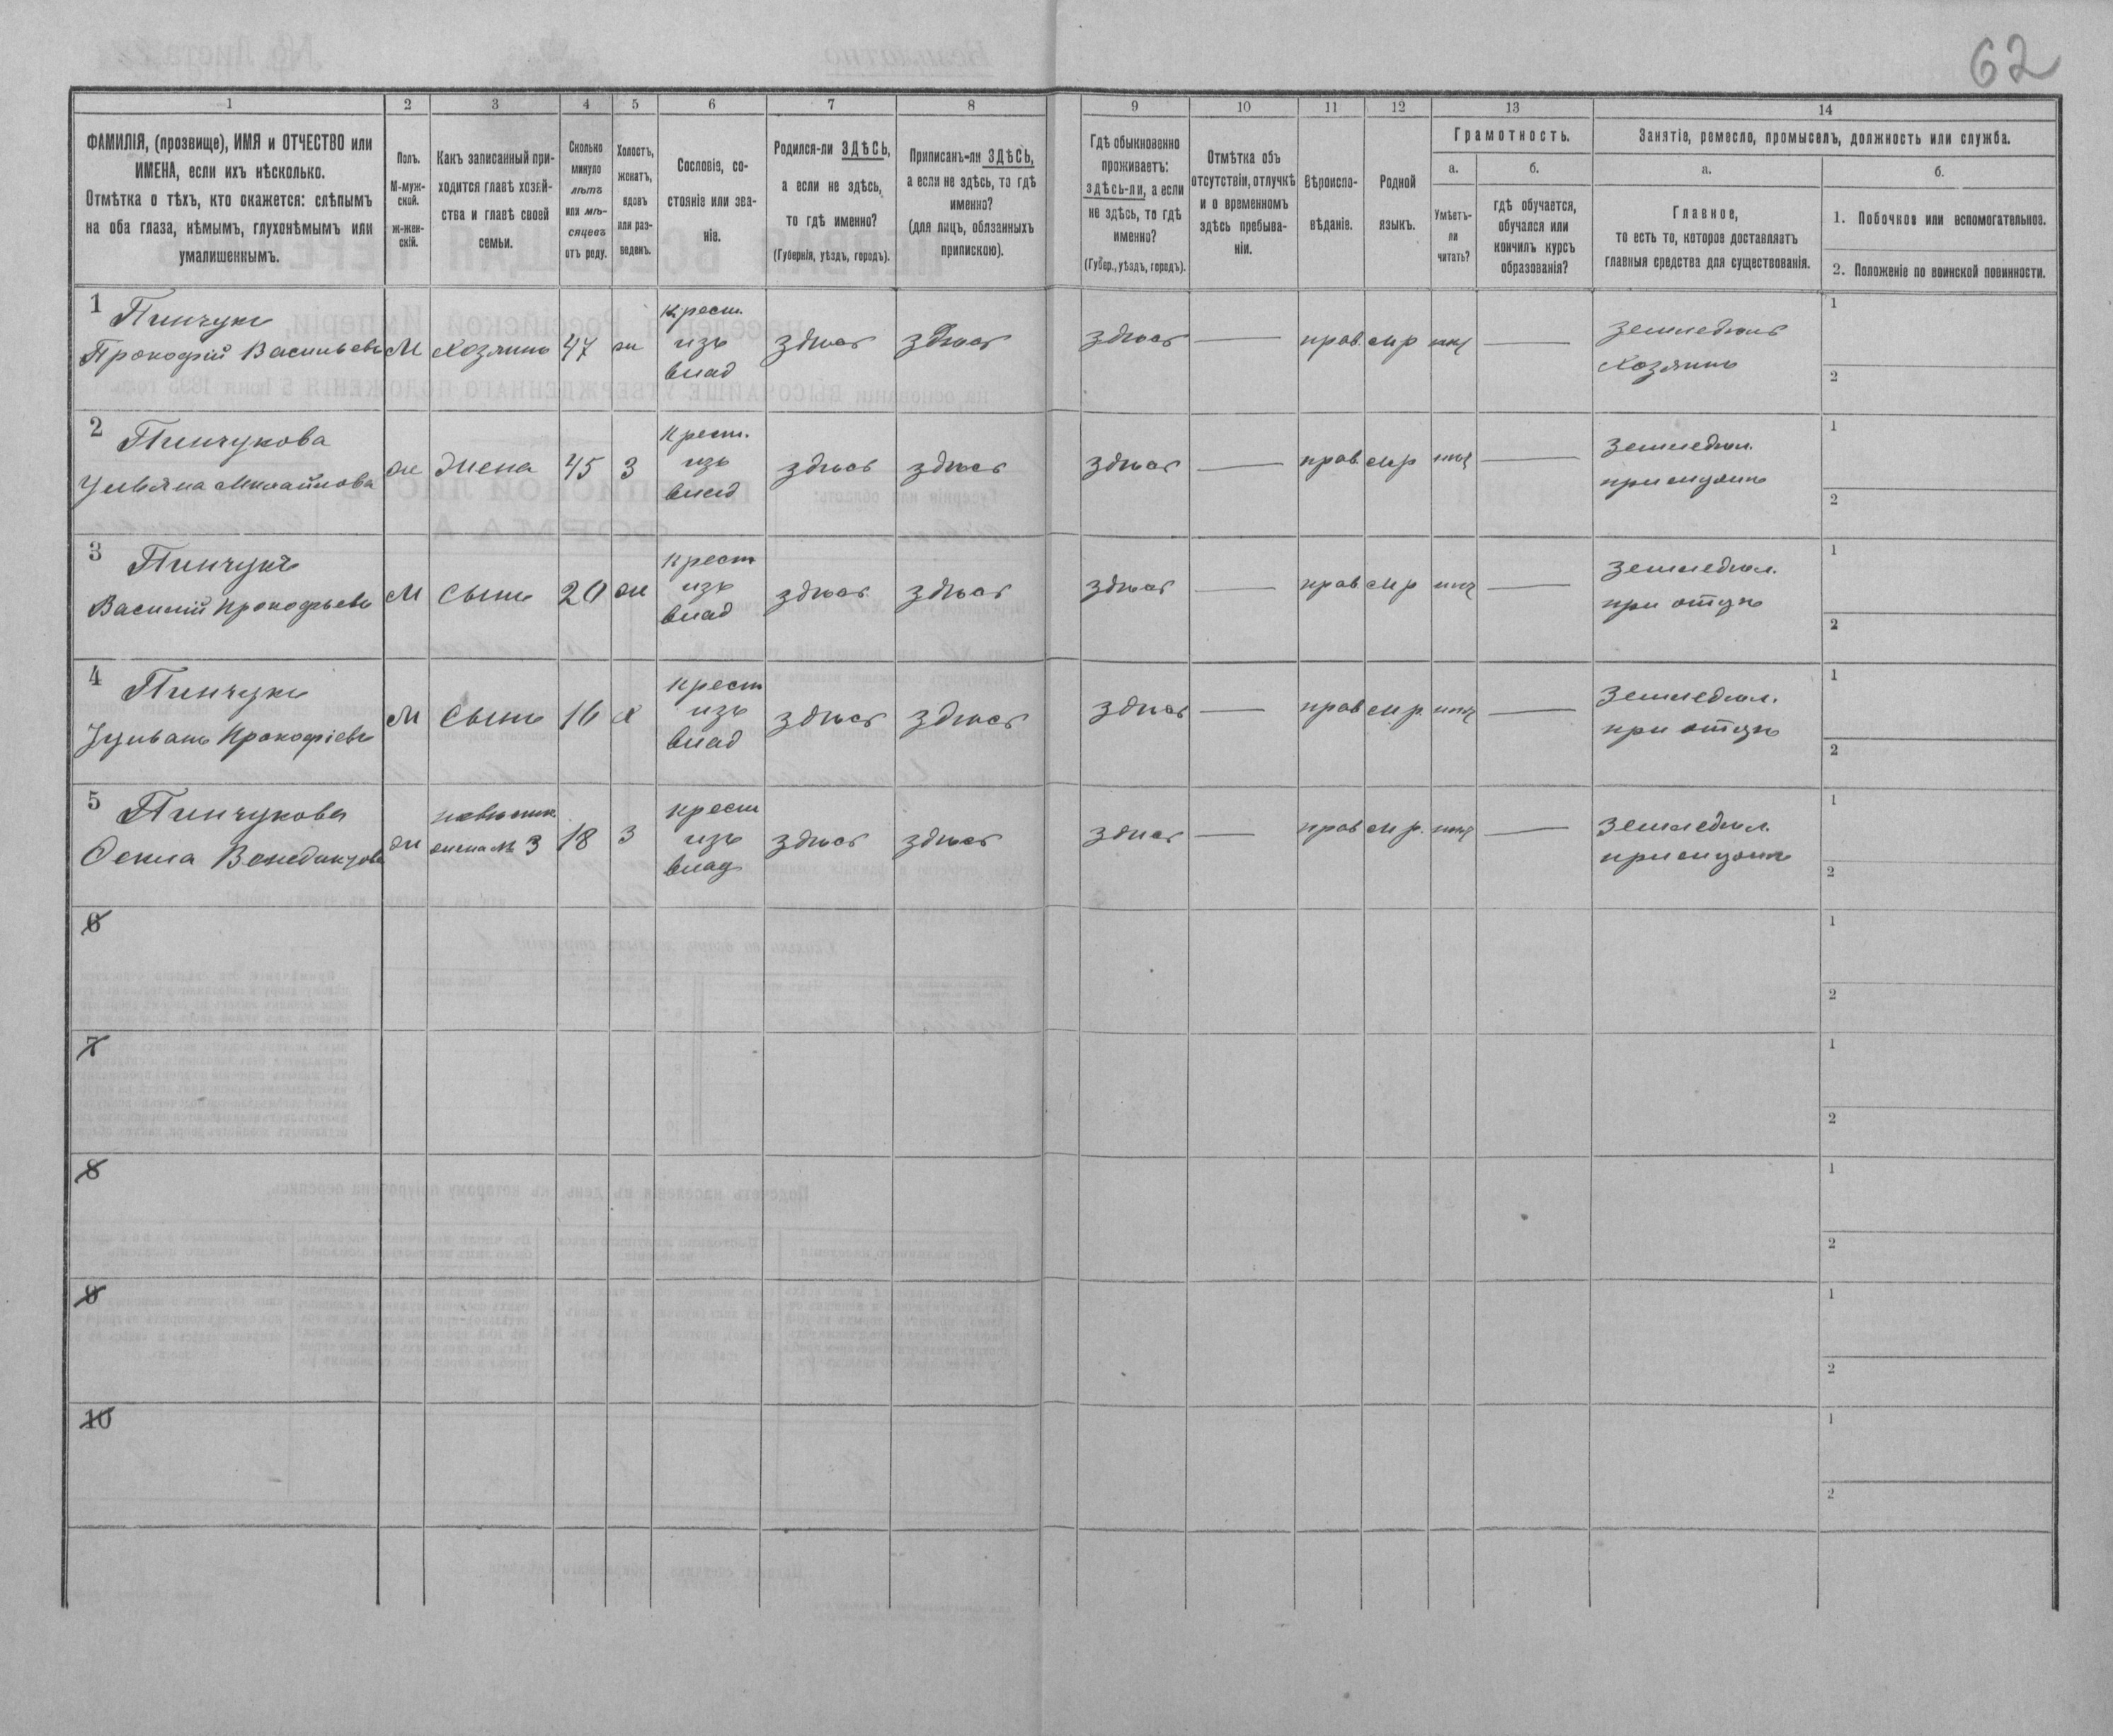 62
1 2 3 4 5 6 7 8 9 10 11 12 13 14
ФАМИЛІЯ, (прозвище), ИМЯ и ОТЧЕСТВО или
ИМЕНА, если ихъ нѣсколько.
Отмѣтка о тѣхъ, кто окажется: слѣпымъ
на оба глаза, нѣмымъ, глухонѣмымъ или
умалишеннымъ.
Полъ.
М-муж-
ской.
ж-жен-
скій.
Какъ записанный при-
ходится главѣ хозяй-
ства и главѣ своей
семьи.
Сколько
минуло
лѣтъ
или мѣ-
сяцевъ
отъ роду.
Холостъ,
женатъ,
вдовъ
или раз-
веденъ.
Сословіе, со-
стояніе или зва-
ніе.
Родился-ли ЗДѢСЬ,
а если не здѣсь,
то гдѣ именно?
(Губернія, уѣздъ, городъ).
Приписанъ-ли ЗДѢСЬ,
а если не здѣсь, то гдѣ
именно?
(для лицъ, обязанныхъ
припискою).
Гдѣ обыкновенно
проживаетъ:
здѣсь-ли, а если
не здѣсь, то гдѣ
именно?
(Губер., уѣздъ, городъ).
Отмѣтка объ
отсутствіи, отлучкѣ
и о временномъ
здѣсь пребыва-
ніи.
Вѣроиспо-
вѣданіе.
Родной
языкъ.
Грамотность.
а.
Умѣетъ-
ли
читать?
б.
гдѣ обучается,
обучался или
кончилъ курсъ
образованія?
Занятіе, ремесло, промыселъ, должность или служба.
а.
Главное,
то есть то, которое доставляетъ
главныя средства для существованія.
б.
1. Побочное или вспомогательное.
2. Положеніе по воинской повинности.
1 Пинчукъ
Прокофій Васильевъ М Хозяинъ 47 ж Крест. изъ влад здѣсь здѣсь здѣсь — прав. м р нѣт — земледѣль
хозяинъ
1
2
2 Пинчукова
Ульяна Михайлова ж жена 45 З Крест. изъ влад здѣсь здѣсь здѣсь — прав. м р нѣт — земледѣл.
при мужѣ
1
2
3 Пинчукъ
Василій Прокофьевъ М Сынъ 20 ж Крест изъ влад здѣсь здѣсь здѣсь — прав м р нѣт — земледѣл.
при отцѣ
1
2
4 Пинчукъ
Прокофіевъ М Сынъ 16 х Крест изъ влад здѣсь здѣсь здѣсь — прав м р. нѣт — земледѣл.
при отцѣ
1
2
5 Пинчукова
ж невѣстк жена № 3 18 З Крест изъ влад здѣсь здѣсь здѣсь — прав м р. нѣт — земледѣл.
при мужѣ
1
2
6
1
2
7
1
2
8
1
2
9
1
2
10
1
2